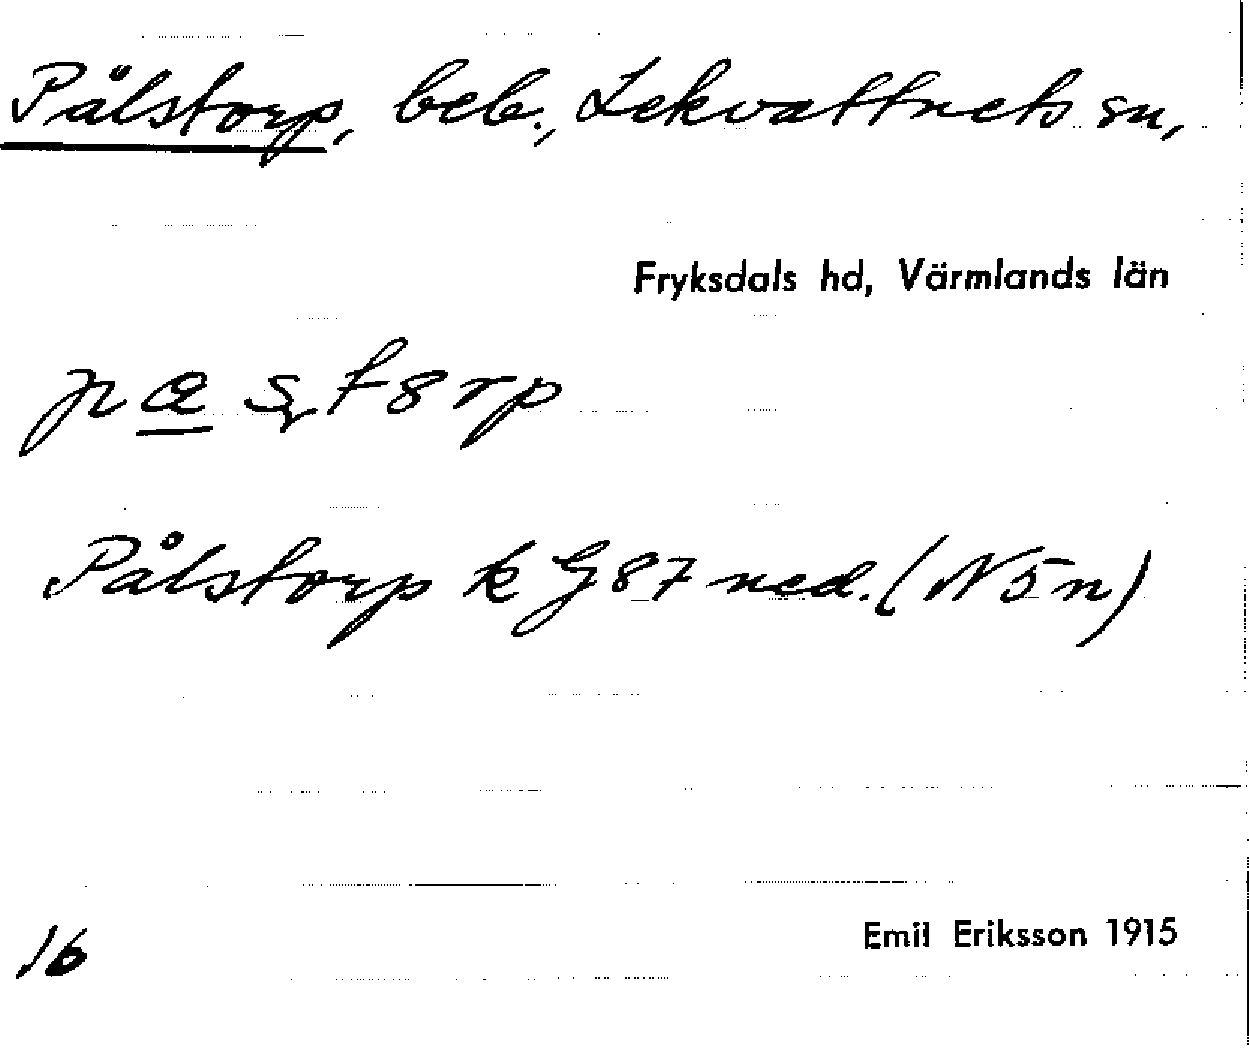 Pålstorp, beb., Lekvattnets sn,
Fryksdals hd, Värmlands län
Pålstorp k G87 ned. (N5n)
16
Emil Eriksson 1915